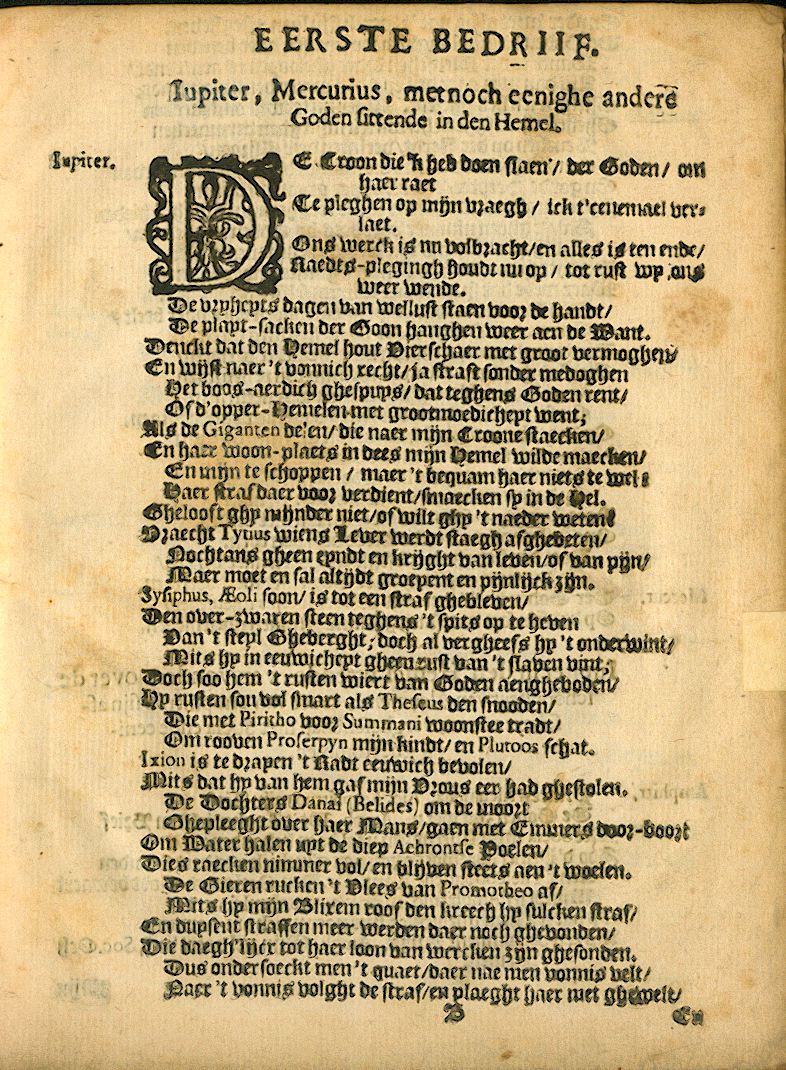 EERSTE BEDRIIF.
Iupiter, Mercurius, met noch eenighe andere
Goden sittende in den Hemel.
Iupiter.
DE Croon die 'k heb doen slaen / der Goden / om
haer raet
Te pleghen op mijn vraegh / ick t'eenemael ver-
laet.
Ons werck is nu volbracht / en alles is ten ende /
Raedts-plegingh houdt nu op / tot rust wy ons
weer wende.
De vryheyts dagen van wellust staen voor de handt /
De playt-sacken der Goon hanghen weer aen de Want.
Denckt dat den Hemel hout Vierschaer met groot vermoghen /
En wijst naer 't vonnich recht / ja straft sonder medoghen
Het boos-aerdich ghespuys / dat teghens Goden rent /
Of d'opper-Hemelen met grootmoedicheyt went;
Als de Giganten de'en / die naer mijn Croone staecken /
En haer woon-plaets in dees mijn Hemel wilde maecken /
En mijn te schoppen / maer 't bequam haer niets te wel:
Haer straf daer voor verdient / smaecken sy in de Hel.
Ghelooft ghy mijnder niet / of wilt ghy 't naeder weten?
Vraecht Tytius wiens Lever werdt staegh afghebeten /
Nochtans gheen eyndt en krijght van leven / of van pijn /
Maer moet en sal altijdt groepent en pijnlijck zijn.
Sysiphus, Æoli soon / is tot een straf ghebleven /
Den over-zwaren steen teghens 't spits op te heven
Van 't steyl Gheberght; doch al vergheefs hy 't onderwint /
Mits hy in eeuwicheyt gheen rust van 't slaven vint;
Doch soo hem 't rusten wiert van Goden aengheboden /
Hy rusten sou vol smart als Theseus den snooden /
Die met Piritho voor Summani woonstee tradt /
Om rooven Proserpyn mijn kindt / en Plutoos schat.
Ixion is te drayen 't Radt eeuwich bevolen /
Mits dat hy van hem gaf mijn Vrous eer had ghestolen.
De Dochters Danai (Belides) om de moort
Ghepleeght over haer Mans / gaen met Emmers door-boort
Om Water halen uyt de diep Achrontse Poelen /
Dies raecken nimmer vol / en blijven steets aen 't woelen.
De Gieren rucken 't Vlees van Promotheo af /
Mits hy mijn Blixem roof den kreech hy sulcken straf /
En duysent straffen meer werden daer noch ghevonden /
Die daegh'lijcx tot haer loon van wercken zijn ghesonden.
Dus ondersoeckt men 't quaet / daer nae men vonnis velt /
Naer 't vonnis volght de straf / en plaeght haer met ghewelt /
B
En